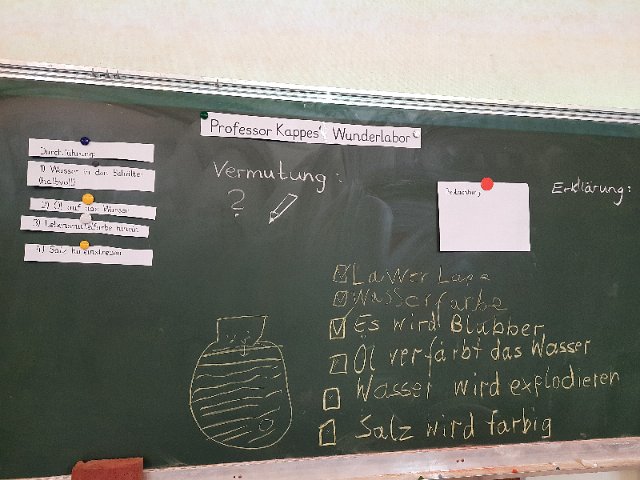 Professor Kappes' Wunderlabor
Durchführung:
1) Wasser in das Schälte
(halbvoll)
2) Öl auf das Wasser
3) Lebensmittelfarbe hinein
4) Salz hineinstreuen
Vermutung:
?
Beobachtung:
Erklärung:
Wasserfarbe
Es wird Blubber
Öl verfärbt das Wasser
Wasser wird explodieren
Salz wird farbig